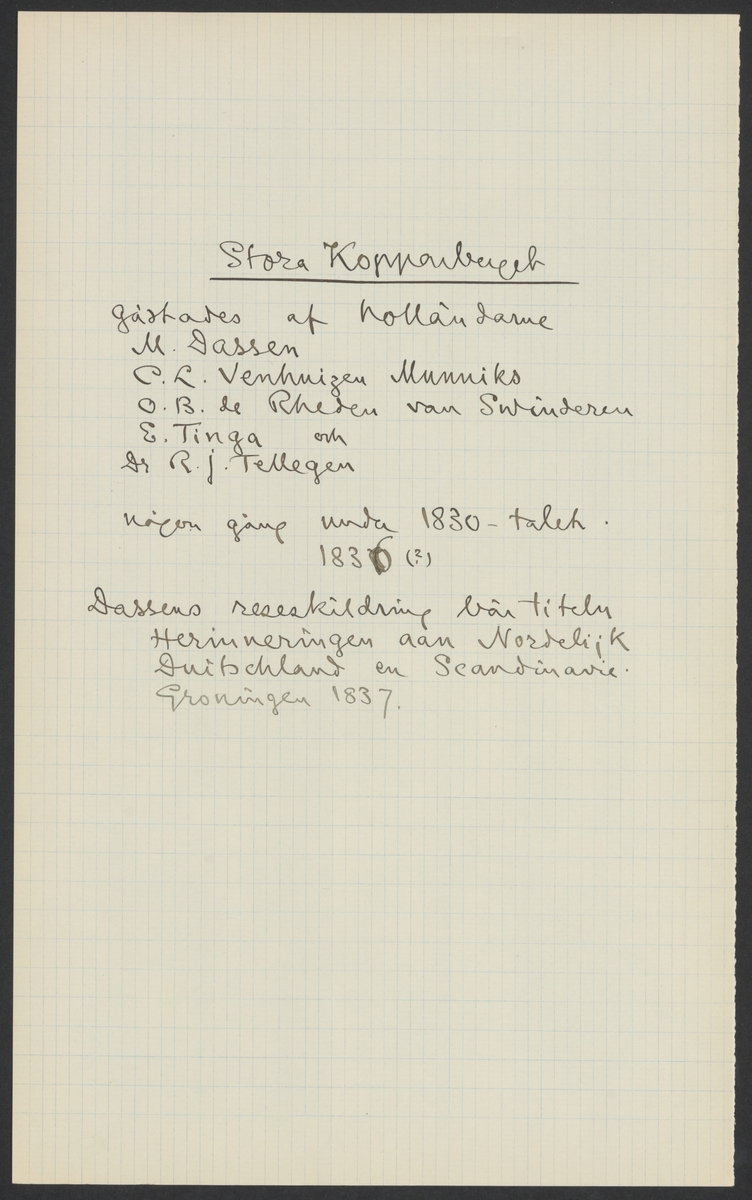 Stora Kopparberget
gästades af holländarne
M. Dassen
C. L. Venhuizen Munniks
O. B. de Rheden van Swinderen
E. Tinga och
Dr R. J. Tellegen
någon gång under 1830-talet.
1836 (?)
Dassens reseskildring bär titeln
Herinneringen aan Nordelijk
Duitschland en Scandinavie.
Groningen 1837.